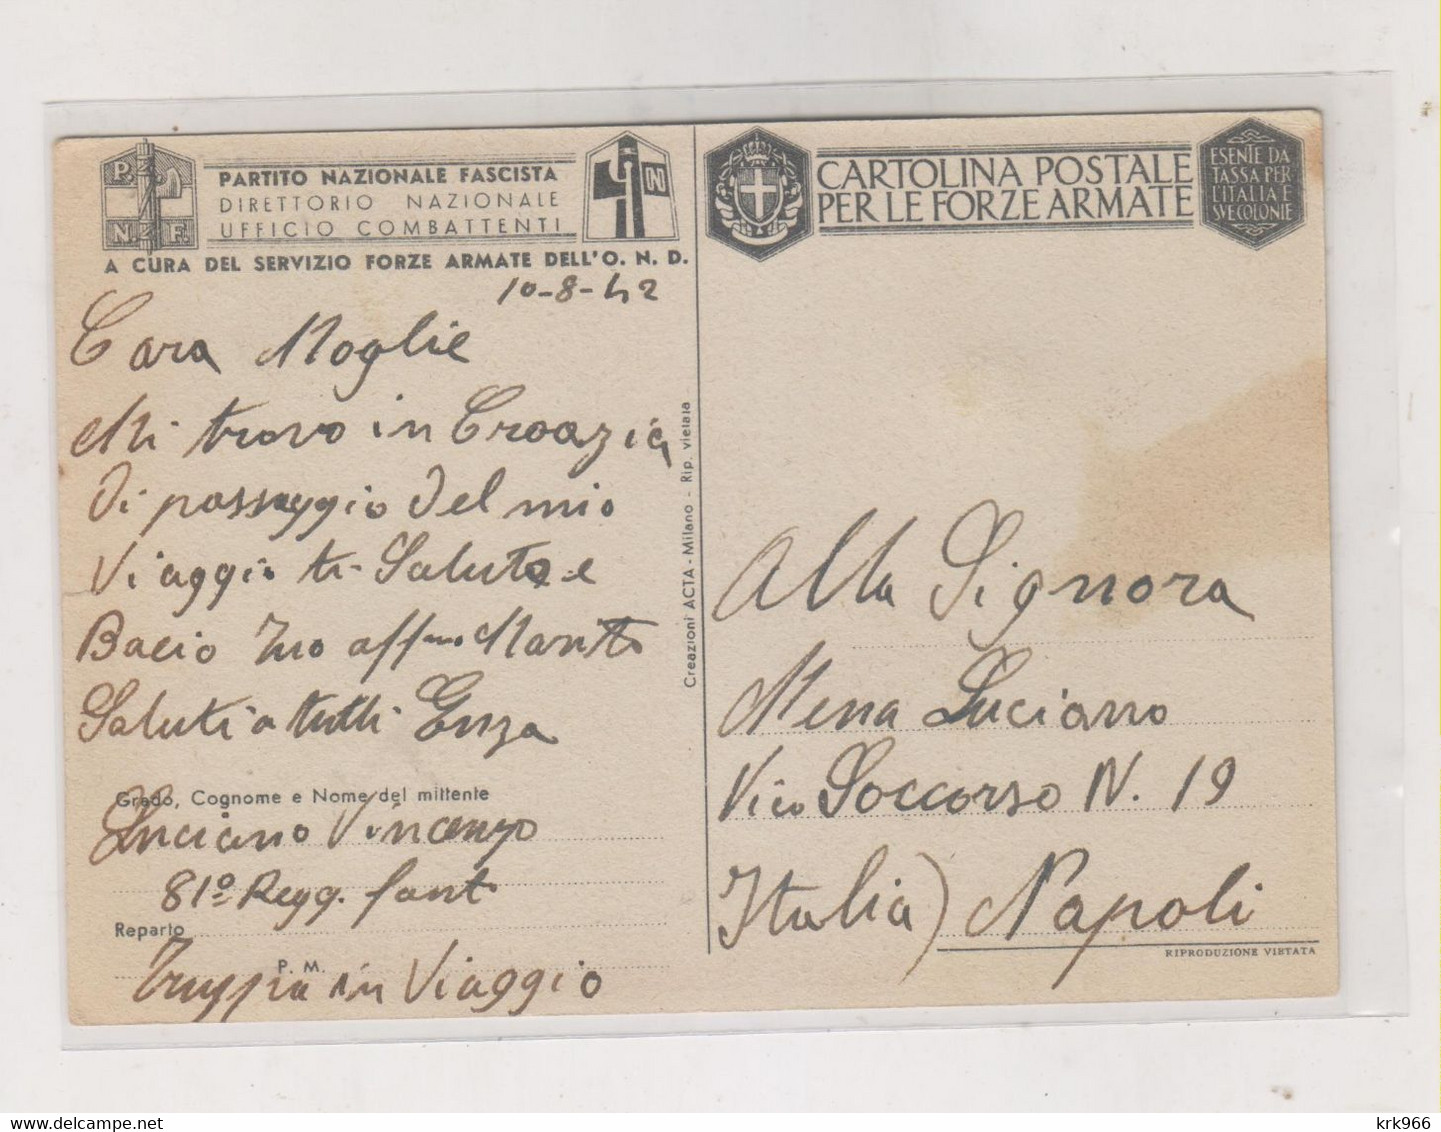 P. N. F.
PARTITO NAZIONALE FASCISTA
DIRETTORIO NAZIONALE
UFFICIO COMBATTENTI
A CURA DEL SERVIZIO FORZE ARMATE DELL'O. N. D.
10-8-42
Cara Moglie
Mi trovo in Croazia
Di passaggio Del mio
Viaggio ti Saluto e
Bacio Tuo aff/mo Marito
Saluti a tutti Enza
Grado, Cognome e Nome del mittente
Luciano Vincenzo
81º Regg. fant
Reparto
P. M.
Truppa in Viaggio
Creazioni ACTA - Milano - Rip. vietata
CARTOLINA POSTALE
PER LE FORZE ARMATE
ESENTE DA
TASSA PER
L'ITALIA E
SVE COLONIE
Alla Signora
Mena Luciano
Vico Soccorso N. 19
Italia) Napoli
RIPRODUZIONE VIETATA
krk966